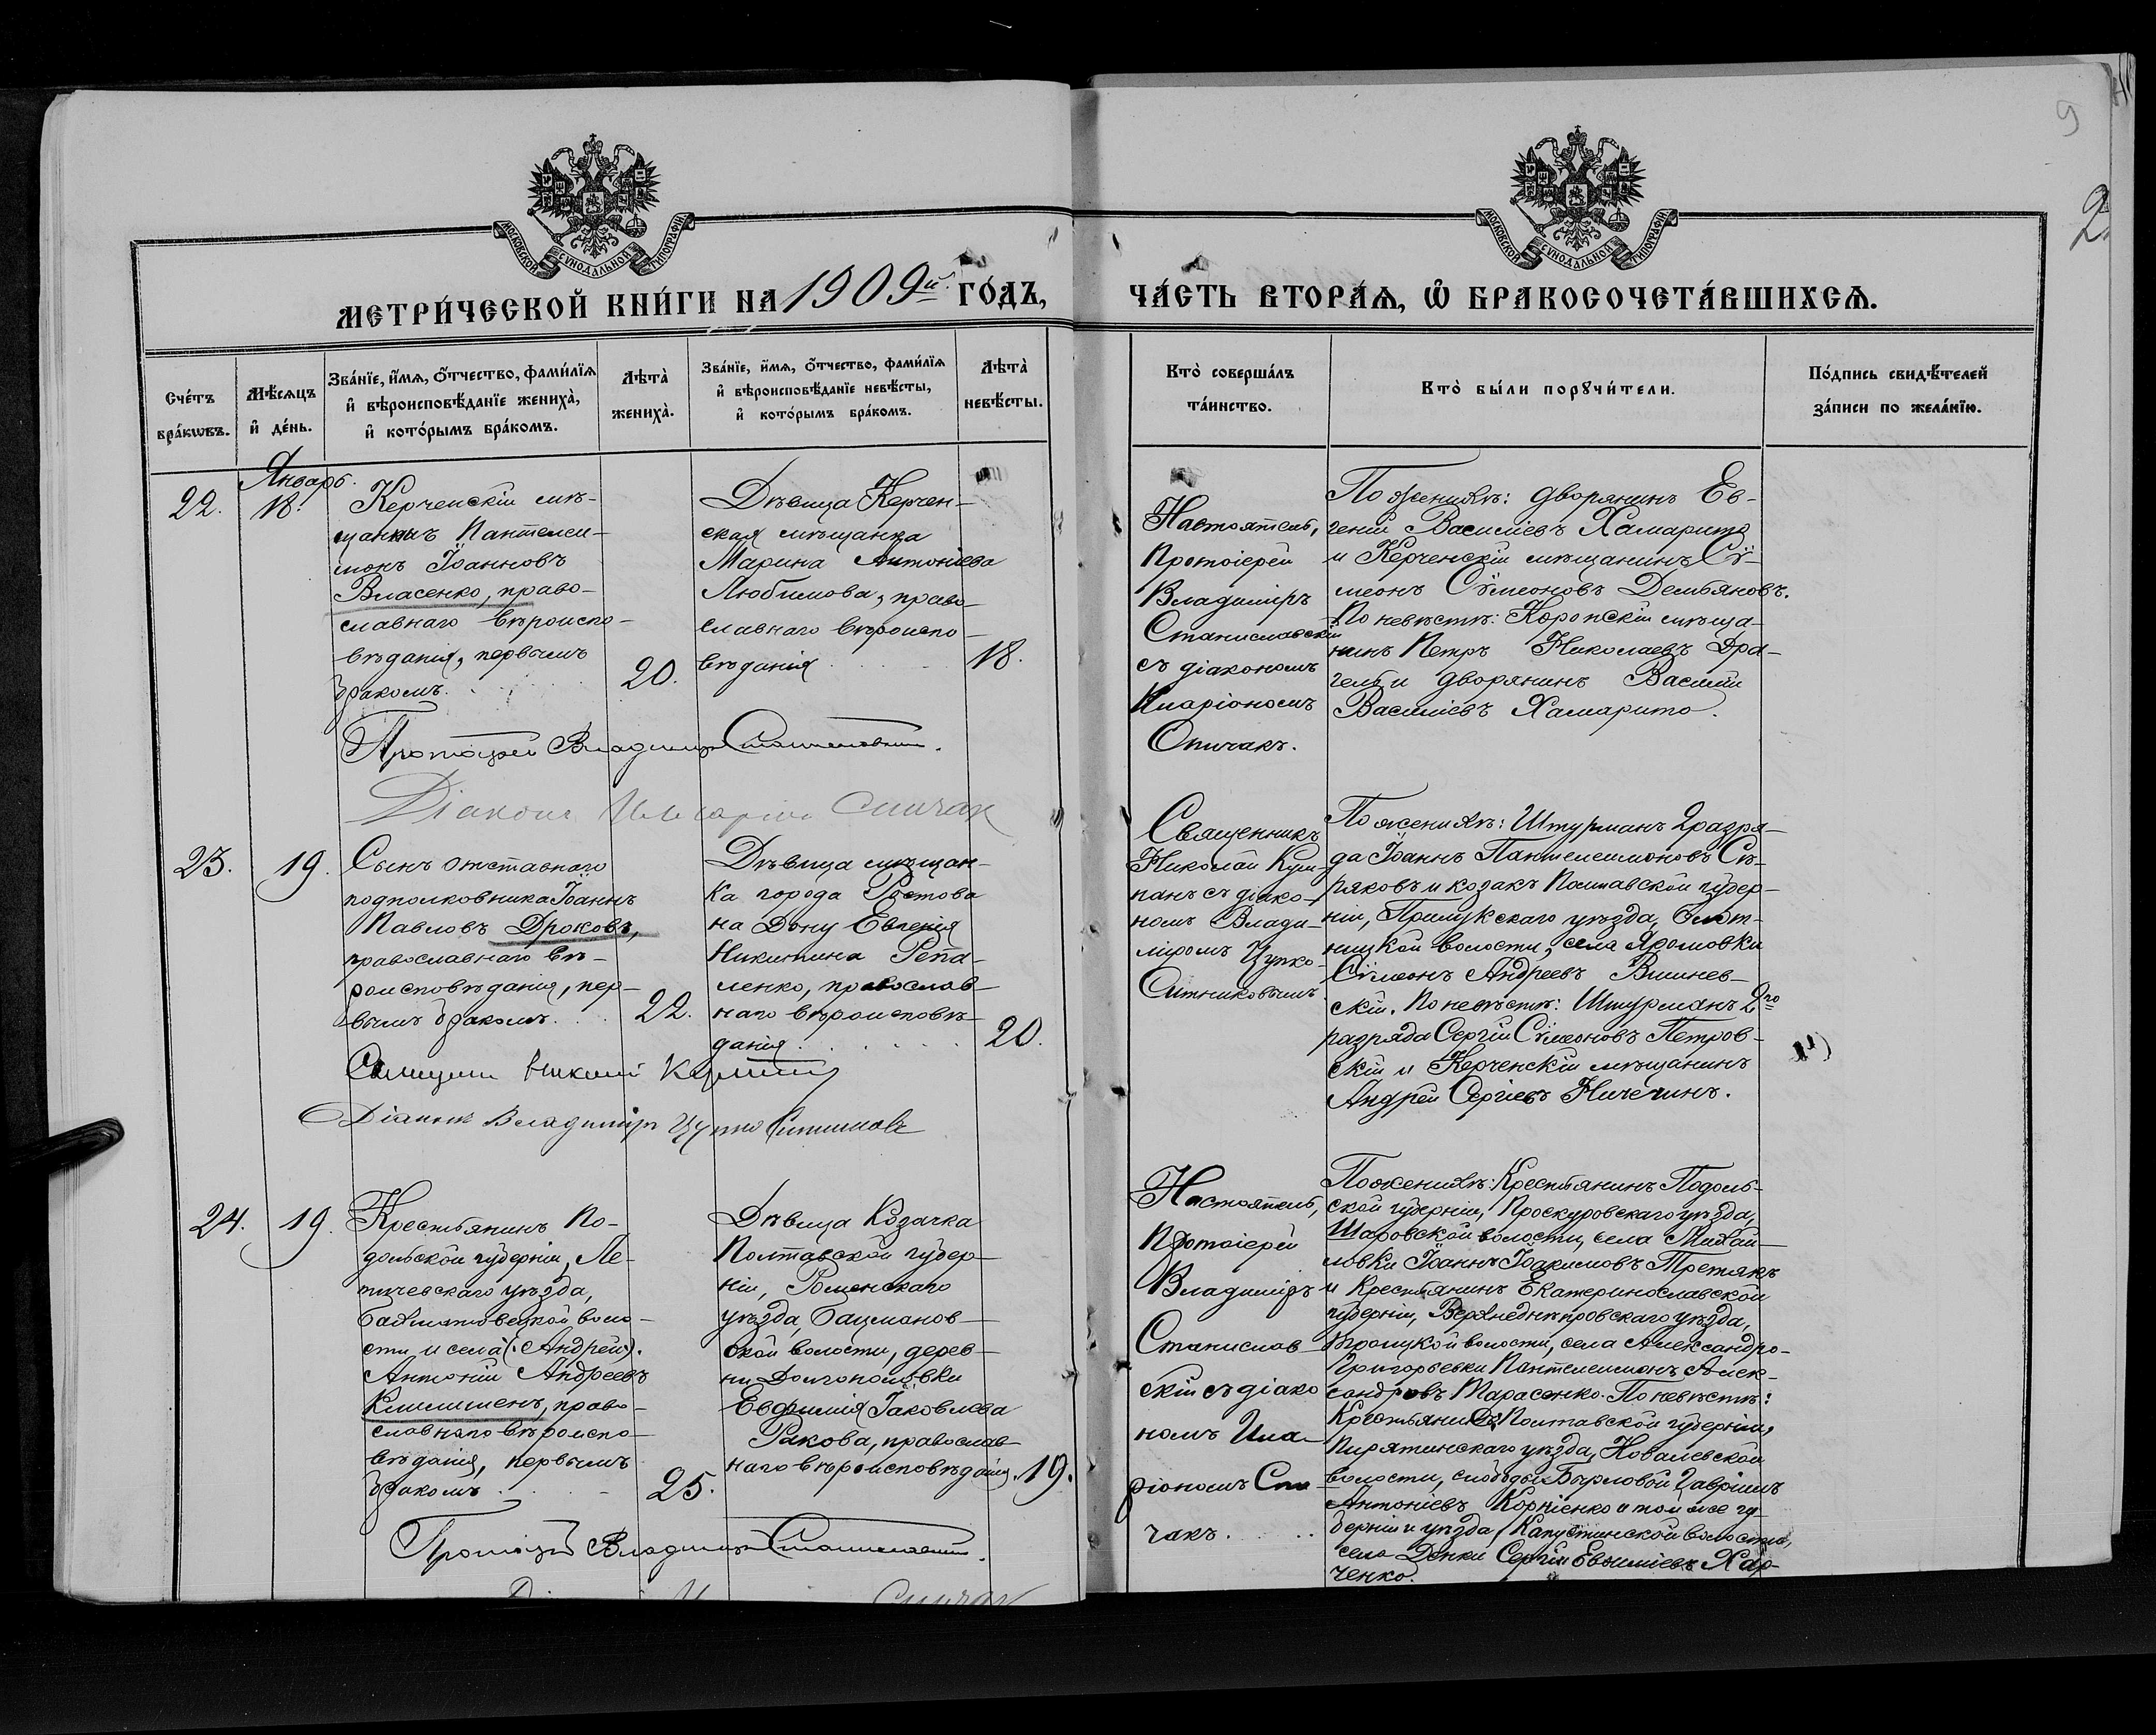 9
2
МОСКОВСКОЙ СѴНОДАЛЬНОЙ ТИПОГРАФІИ
МОСКОВСКОЙ СѴНОДАЛЬНОЙ ТИПОГРАФІИ
МЕТРИ́ЧЕСКОЙ КНИ́ГИ НА 1909й ГО́ДЪ,
ЧА́СТЬ ВТОРА́Ѧ, Ѡ҆ БРАКОСОЧЕТА́ВШИХСѦ.
Сче́тъ
бра́кѡвъ.
Мѣ́сѧцъ
и҆ де́нь.
Зва́нїе, и҆́мѧ, ѻ҆́тчество, фами́лїѧ
и҆ вѣроисповѣ́данїе жениха̀,
и҆ кото́рымъ бра́комъ.
Лѣта̀
жениха̀.
Зва́нїе, и҆́мѧ, ѻ҆́тчество, фами́лїѧ
и҆ вѣроисповѣ́данїе невѣ́сты,
и҆ кото́рымъ бра́комъ.
Лѣта̀
невѣ́сты.
Кто̀ соверша́лъ
та́инство.
Кто̀ бы́ли порꙋчи́тели.
По́дпись свидѣ́телей
за́писи по жела́нїю.
Январь.
22.
18.
Керченскій мѣ-
щанинъ Пантелеи-
монъ Іоанновъ
Власенко, право-
славнаго вѣроиспо-
вѣданія, первымъ
бракомъ.
20.
Дѣвица Керчен-
ская мѣщанка
Марина Антоніева
Любимова, право-
славнаго вѣроиспо-
вѣданія
18.
Настоятель,
Протоіерей
Владиміръ
Станиславскій
съ діакономъ
Иларіономъ
Спичакъ.
По женихѣ: дворянинъ Ев-
геній Василіевъ Хамарито
и Керченскій мѣщанинъ Сѵ-
меонъ Сѵмеоновъ Демьяновъ.
По невѣстѣ: Коропскій мѣща-
нинъ Петръ Николаевъ Дра-
гель и дворянинъ Василій
Василіевъ Хамарито.
Протоіерей Владиміръ Станиславскій.
Діаконъ Иларіонъ Спичак
23.
19.
Сынъ отставнаго
подполковника Іоаннъ
Павловъ Дроковъ,
православнаго вѣ-
роисповѣданія, пер-
вымъ бракомъ.
22.
Дѣвица мѣщан-
ка города Ростова
на Дону Евгенія
Никитина Репа-
ленко, православ-
наго вѣроисповѣ-
данія.
20.
Священникъ
Николай Кум-
панъ съ діако-
номъ Влади-
міромъ Цупко-
Ситниковымъ
По женихѣ: Штурманъ 2 разря-
да Іоаннъ Пантелеимоновъ Сѣ-
ряковъ и козакъ Полтавской губер-
ніи, Прилукскаго уѣзда,
волости, села Ярошовки
Сѵмеонъ Андреевъ Вишнев-
скій. По невѣстѣ: Штурманъ 2го
разряда Сергій Сѵмеоновъ Петров-
скій и Керченскій мѣщанинъ
Андрей Сергіевъ Ничечинъ.
Священникъ Николай Кумпанъ
Діаконъ Владиміръ Цупко Ситниковъ
24.
19.
Крестьянинъ По-
дольской губерніи, Ле-
тичевскаго уѣзда,
Бахматовецкой воло-
сти и села (: Андрей:).
Антоній Андреевъ
Климишенъ, право-
славнаго вѣроиспо-
вѣданія, первымъ
бракомъ
25.
Дѣвица Козачка
Полтавской губер-
ніи, Роменскаго
уѣзда, Бацманов-
ской волости, дерев-
ни Долгополовки
Евфимія Іаковлева
Ракова, православ-
наго вѣроисповѣданія.
19.
Настоятель,
Протоіерей
Владиміръ
Станислав-
скій съ діако
номъ Ила-
ріономъ Спи-
чакъ.
По женихѣ: Крестьянинъ Подоль-
ской губерніи, Проскуровскаго уѣзда,
Шаровской волости, села Михай-
ловки Іоаннъ Іоакимовъ Третякъ
и Крестьянинъ Екатеринославской
губерніи, Верхнеднѣпровскаго уѣзда,
Троицкой волости, села Александро-
Григорьевки Пантелеимонъ Алек-
сандровъ Тарасенко. По невѣстѣ:
Крестьянинъ Полтавской губерніи,
Пирятинскаго уѣзда, Ковалевской
волости, слободы Бырловой Гавріилъ
Антоніевъ Корніенко и той же гу-
берніи и уѣзда, Капустинской волости,
села Денки Сергій Евфиміевъ Хар-
ченко.
Протоіерей Владиміръ Станиславскій.
Спичак